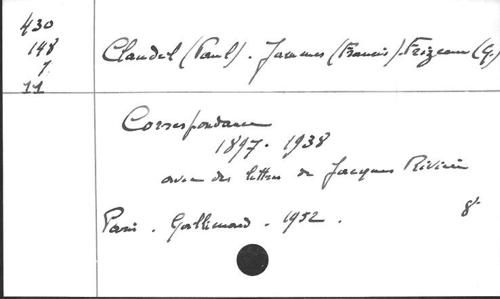 430
148
7
11
Claudel (Paul). Jammes (Francis). Frizeau (G.)
Correspondance
1897-1938
avec des lettres de Jacques Rivière
Paris. Gallimard. 1952.
8°